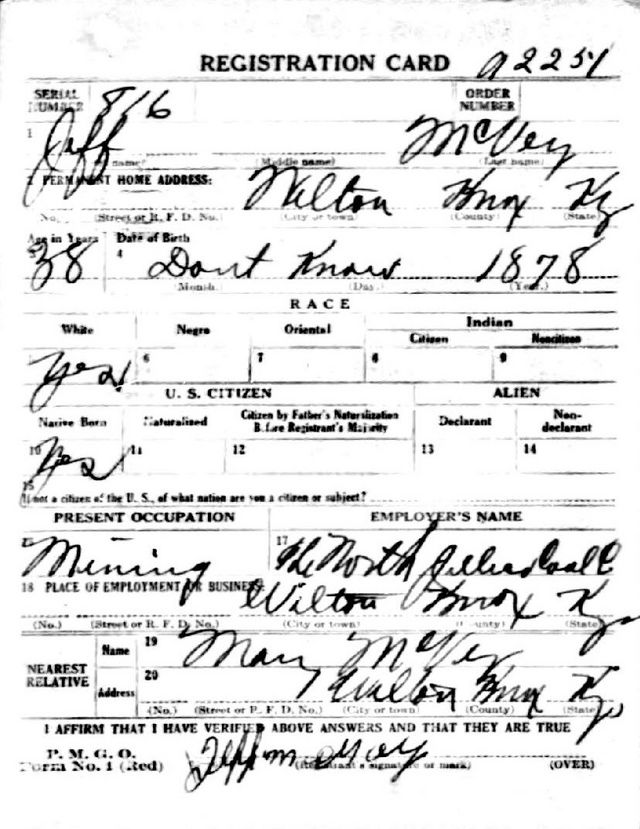 REGISTRATION CARD A2251
SERIAL NUMBER 816 ORDER NUMBER
1 Jeff McVey
name) (Middle name) (Last name)
2 PERMANENT HOME ADDRESS: Wilton Knox Ky
No. (Street or R. F. D. No.) (City or town) (County) (State)
Age in Years Date of Birth
38 4 Dont Know 1878
(Month.) (Day.) (Year.)
RACE
White Negro Oriental Indian
Citizen Noncitizen
Yes 6 7 8 9
U. S. CITIZEN ALIEN
Native Born Naturalized Citizen by Father's Naturalization Before Registrant's Majority Declarant Non-declarant
10 Yes 11 12 13 14
15
If not a citizen of the U. S., of what nation are you a citizen or subject?
PRESENT OCCUPATION EMPLOYER'S NAME
Mining 17 The North Coal C
18 PLACE OF EMPLOYMENT OR BUSINESS:
Wilton Knox Ky
(No.) (Street or R. F. D. No.) (City or town) (County) (State)
NEAREST RELATIVE Name 19 Mary McVey
Address 20 Wilton Knox Ky
(No.) (Street or R. F. D. No.) (City or town) (County) (State)
I AFFIRM THAT I HAVE VERIFIED ABOVE ANSWERS AND THAT THEY ARE TRUE
P. M. G. O.
Form No. 1 (Red) Jeff (Registrant's signature or mark) (OVER)